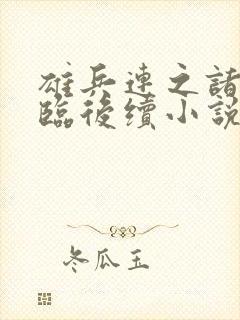 雄兵連之諸
臨後續小說
冬瓜玉